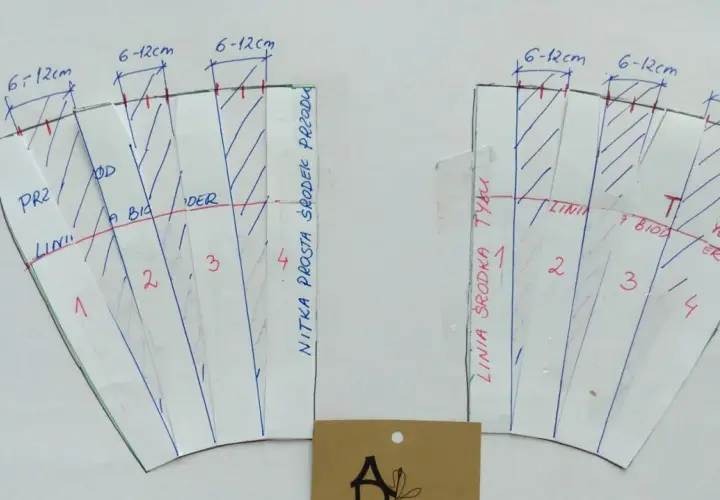 6-12cm
6-12cm
6-12cm
PRZ ÓD
LINIA BIODER
1
2
3
4
NITKA PROSTA ŚRODEK PRZODU
6-12cm
6-12cm
LINIA ŚRODKA TYŁU
T
LINI
BIOD
ER
1
2
3
4